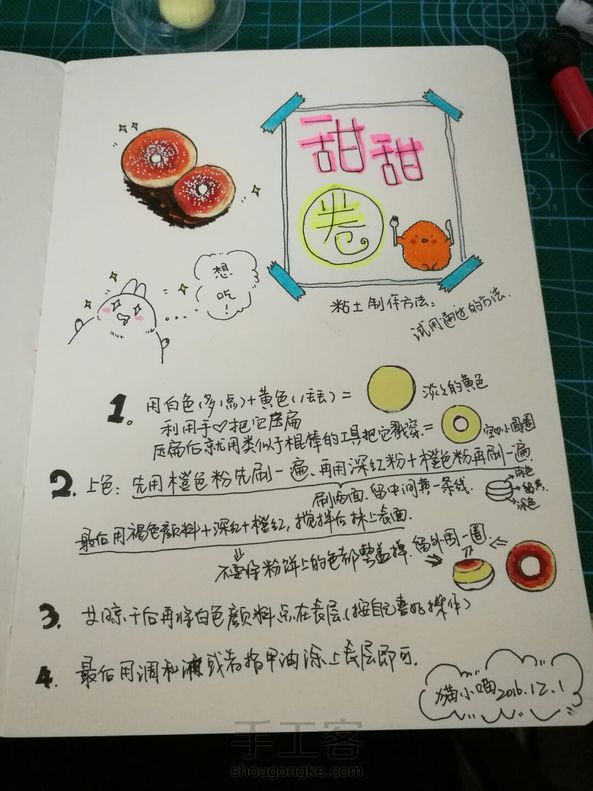 甜甜
卷
想
吃!
粘土制作方法。
试用通过的方法.
1. 用白色(多点)+黄色(丢丢) = 淡淡的黄色
利用手♡把它压扁
压扁后就用类似于棍棒的工具把它戳穿. = 空心小圆圈
2. 上色: 先用橙色粉先刷一遍、再用深红粉+橙色粉再刷一遍.
刷两面.留中间黄一条线.
涂色
留黄
涂色
最后用褐色颜料+深红+橙红,搅拌后抹上表面.
不要将粉饼上的色都整盖掉.留外围一圈
3. 晾干后再将白色颜料点在表层(按自己喜好操作)
4. 最后用调和液或者指甲油涂上表层即可.
猫小喵2016.12.1
手工客
shougongke.com